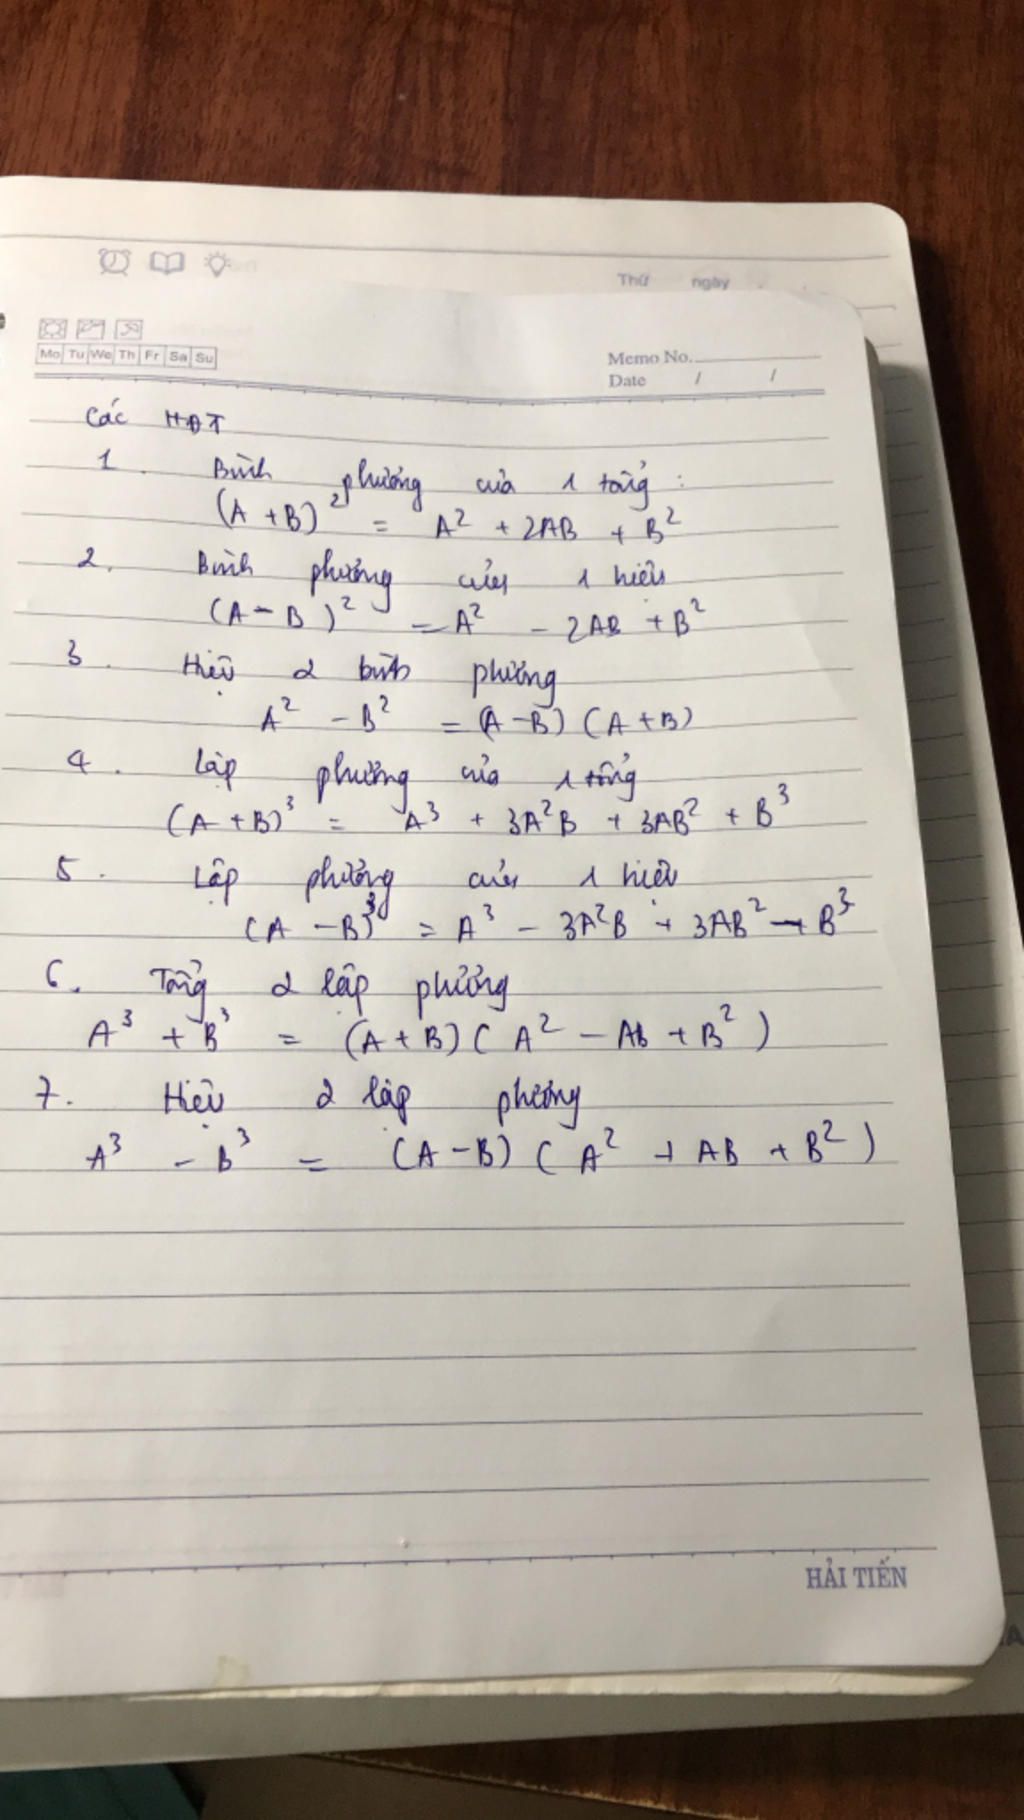 Thứ ngày
Mo Tu We Th Fr Sa Su
Memo No.
Date / /
Các HĐT
1. Bình phương của 1 tổng:
(A+B)² = A² + 2AB + B²
2. Bình phương của 1 hiệu
(A-B)² = A² - 2AB + B²
3. Hiệu 2 bình phương
A² - B² = (A-B)(A+B)
4. Lập phương của 1 tổng
(A+B)³ = A³ + 3A²B + 3AB² + B³
5. Lập phương của 1 hiệu
(A-B)³ = A³ - 3A²B + 3AB² - B³
6. Tổng 2 lập phương
A³ + B³ = (A+B)(A² - AB + B²)
7. Hiệu 2 lập phương
A³ - B³ = (A-B)(A² + AB + B²)
HẢI TIẾN